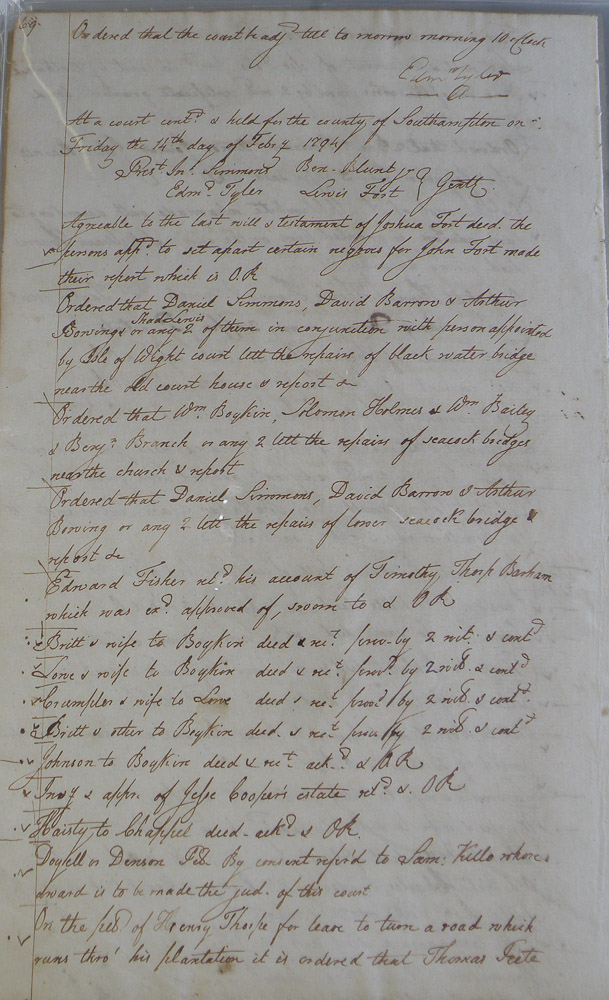 Ordered that the court be adjd till to morrow morning 10 oClock
Edmd Tyler
At a court contd & held for the county of Southampton on
Friday the 14th day of Feby 1794
Prest Jn. Simmons Ben. Blunt Jr
Edmd. Tyler Lewis Fort Gentl.
Agreeable to the last will & testament of Joshua Fort deed. the
persons appd. to set apart certain negroes for John Fort made
their report which is O.R
Ordered that Daniel Simmons, David Barrow & Arthur
Shade Lewis
Bowings or any 2 of them in conjunction with person appointed
by Isle of Wight court lett the repairs of black water bridge
near the old court house & report &c
Ordered that Wm Boykin, Solomon Holmes & Wm. Bailey
& Benjn Branch or any 2 lett the repairs of seacock bridges
near the church & report
Ordered that Daniel Simmons, David Barrow & Arthur
Bowing or any 2 lett the repairs of lower seacock bridge &
report &c
Edward Fisher retd. his account of Timothy Thorp Barham
which was exd. approved of, sworn to & OR
Britt & wife to Boykin deed & rect. prov. by 2 wit. & contd
Love & wife to Boykin deed & rect. provd. by 2 wit. & contd
Crumpler & wife to Love deed & rect. provd by 2 wit. & contd.
Britt & other to Boykin deed. & rect prov by 2 wit. & contd
Johnson to Boykin deed & rect. ackd. & OR
Invy & appr. of Jesse Cooper's estate retd. &. OR
Haisty to Chappel deed. ackd. & OR.
Doyell vs Denson By consent referd to Sam: Kello whose
award is to be made the jud. of this court
On the petd of Henry Thorpe for leave to turn a road which
runs thro' his plantation it is ordered that Thomas